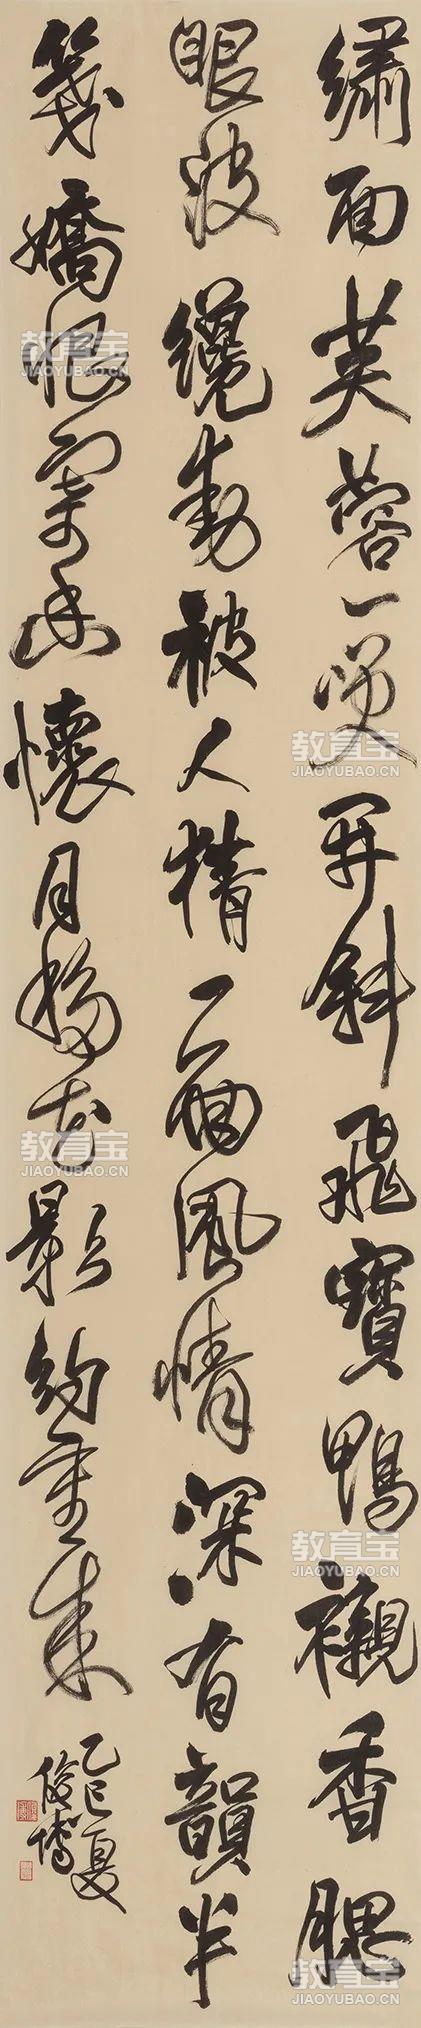 繡面芙蓉一笑開斜飛寶鴨襯香腮
眼波纔動被人猜一面風情深有韻半
箋嬌恨寄幽懷月移花影約重來
乙巳夏
俊博
教育宝
JIAOYUBAO.CN
教育宝
JIAOYUBAO.CN
教育宝
JIAOYUBAO.CN
教育宝
JIAOYUBAO.CN
教育宝
JIAOYUBAO.CN